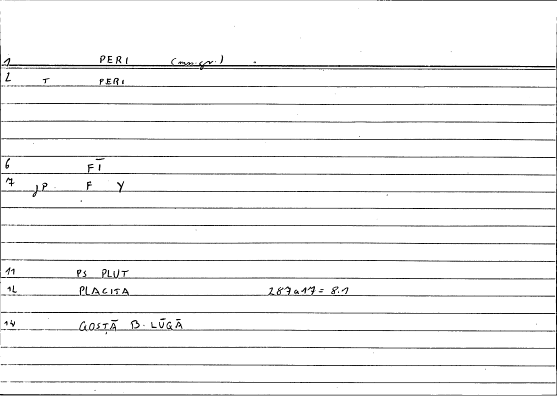 1 PERI (mn.gr.)
2 T PERI
6 FĪ
7 JP F Y
11 PS PLUT
12 PLACITA 287a17 = 8.1
14 QOSṬĀ B. LŪQĀ